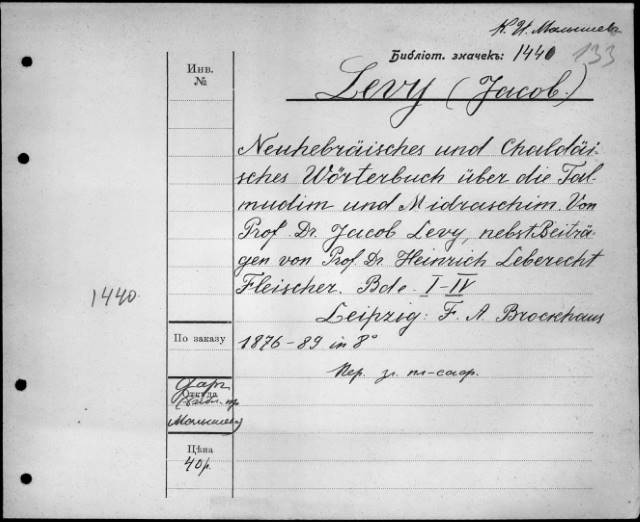 К. И. Малышев
Библіот. значекъ: 1440 133
Инв.
№
Levy (Jacob.)
Neuhebräisches und Chaldäi-
sches Wörterbuch über die Tal-
mudim und Midraschim. Von
Prof. Dr. Jacob Levy, nebst Beiträ-
gen von Prof. Dr. Heinrich Leberecht
Fleischer. Bde. I-IV
1440.
Leipzig: F. A. Brockhaus
По заказу
1876-89 in 8°
Пер.
Даръ
Откуда
Малышева
Цѣна
40 р.